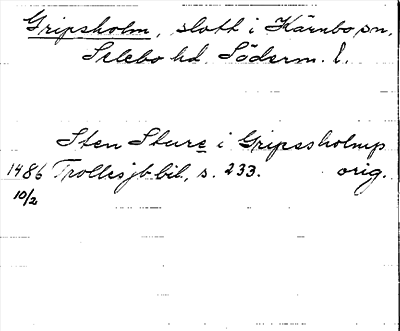 Gripsholm, slott i Kärnbo sn,
Selebo hd. Söderm. l.
Sten Sture i Gripssholmp
1486 Trollesjb bil, s. 233. orig.
10/2